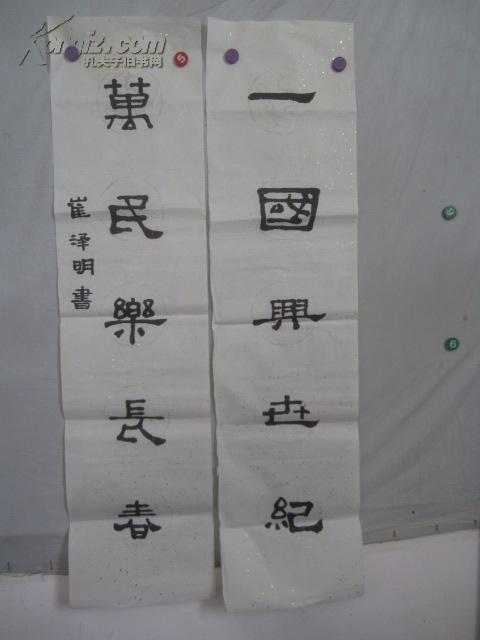 一國興世紀
萬民樂長春
崔泽明書
Kongfz.com
孔夫子旧书网
5
9